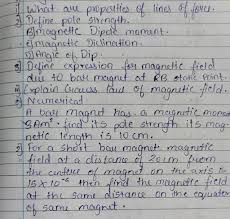 1) What are properties of lines of force.
2) Define pole strength.
B) magnetic Dipole moment.
c) magnetic Diclination.
D) Angle of Dip.
3) Define expression for magnetic field
due to bar magnet at point.
4) Explain Gauss law of magnetic field.
5) Numerical
A bar magnet has a magnetic moment
5Am² find its pole strength its mag-
netic length is 10 cm.
For a short bar magnet magnetic
field at a distance of 20 cm from
the centre of magnet on the axis is
15 x 10⁻⁶ then find the magnetic field
at the same distance on the equator
of same magnet.